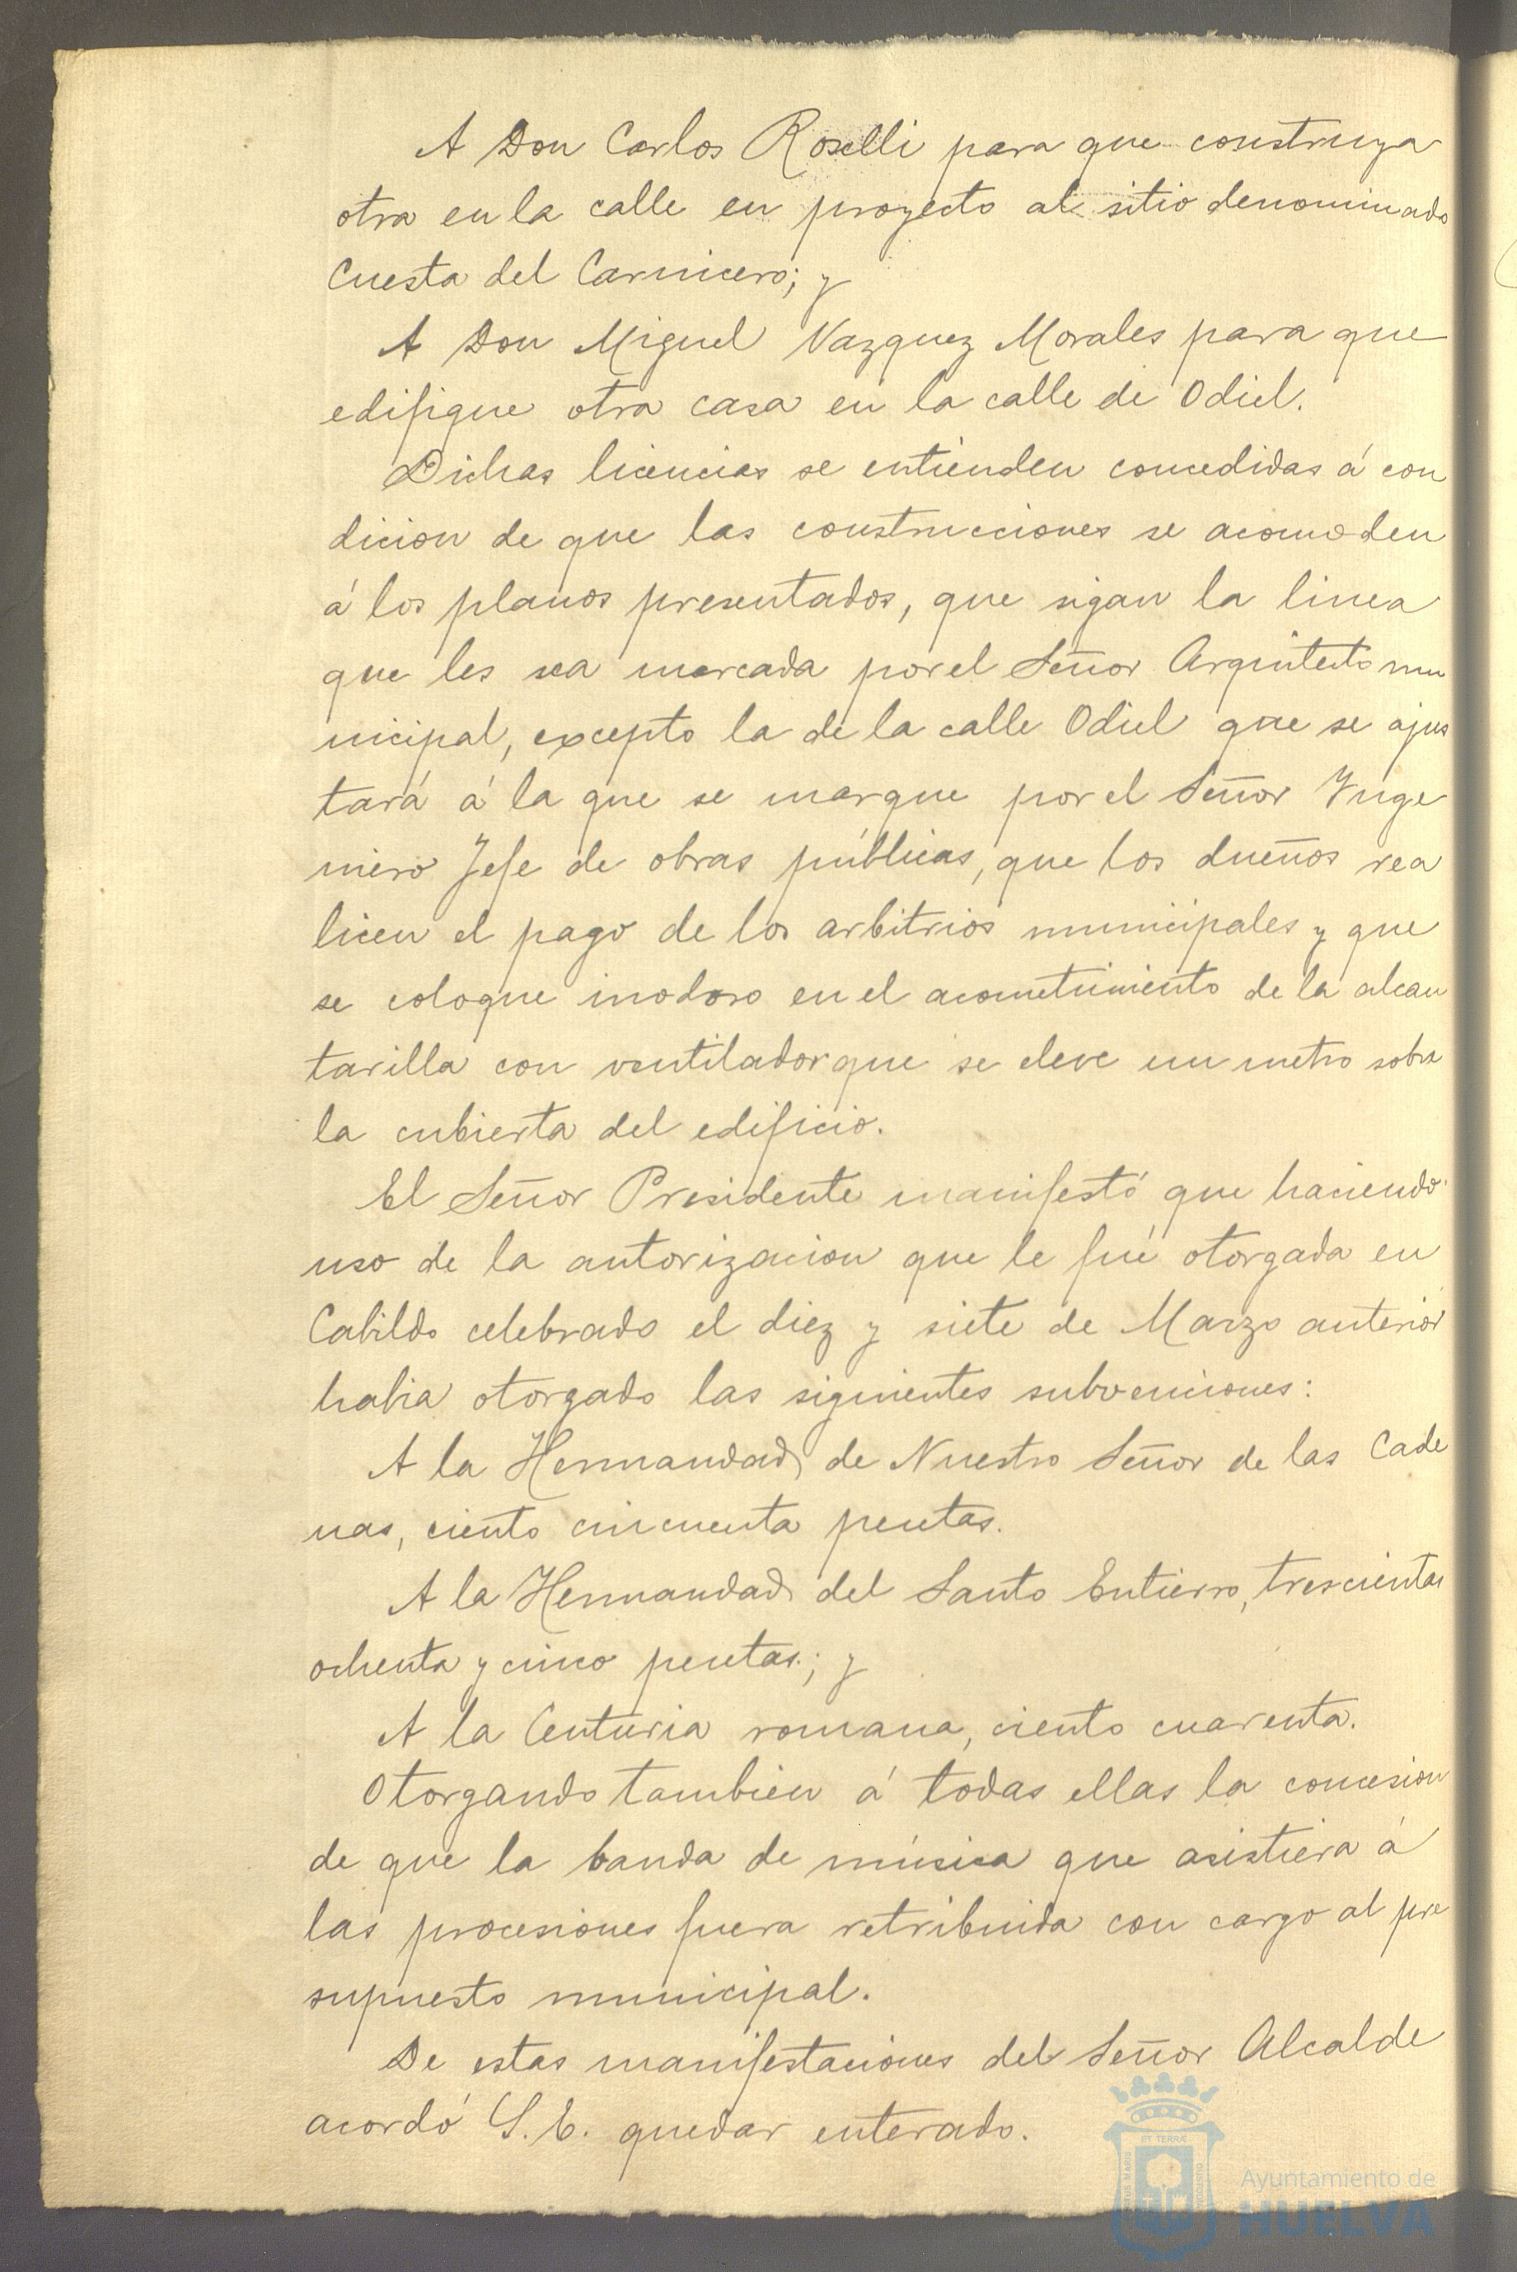 A Don Carlos Roselli para que construya
otra en la calle en proyecto al sitio denominado
Cuesta del Carnicero; y
A Don Miguel Vazquez Morales para que
edifique otra casa en la calle de Odiel.
Dichas licencias se entienden concedidas á con
dicion de que las construcciones se acomoden
á los planos presentados, que sigan la linea
que les sea marcada por el Señor Arquitecto mu
nicipal, excepto la de la calle Odiel que se ajus
tará á la que se marque por el Señor Inge
niero Jefe de obras públicas, que los dueños rea
licen el pago de los arbitrios municipales y que
se coloque inodoro en el acometimiento de la alcan
tarilla con ventilador que se eleve un metro sobre
la cubierta del edificio.
El Señor Presidente manifestó que haciendo
uso de la autorizacion que le fué otorgada en
Cabildo celebrado el diez y siete de Marzo anterior
habia otorgado las siguientes subvenciones:
A la Hermandad de Nuestro Señor de las Cade
nas, ciento cincuenta pesetas.
A la Hermandad del Santo Entierro, trescientas
ochenta y cinco pesetas; y
A la Centuria romana, ciento cuarenta.
Otorgando tambien á todas ellas la concesion
de que la banda de música que asistiera á
las procesiones fuera retribuida con cargo al pre
supuesto municipal.
De estas manifestaciones del Señor Alcalde
acordó S.E. quedar enterado.
Ayuntamiento de
HUELVA